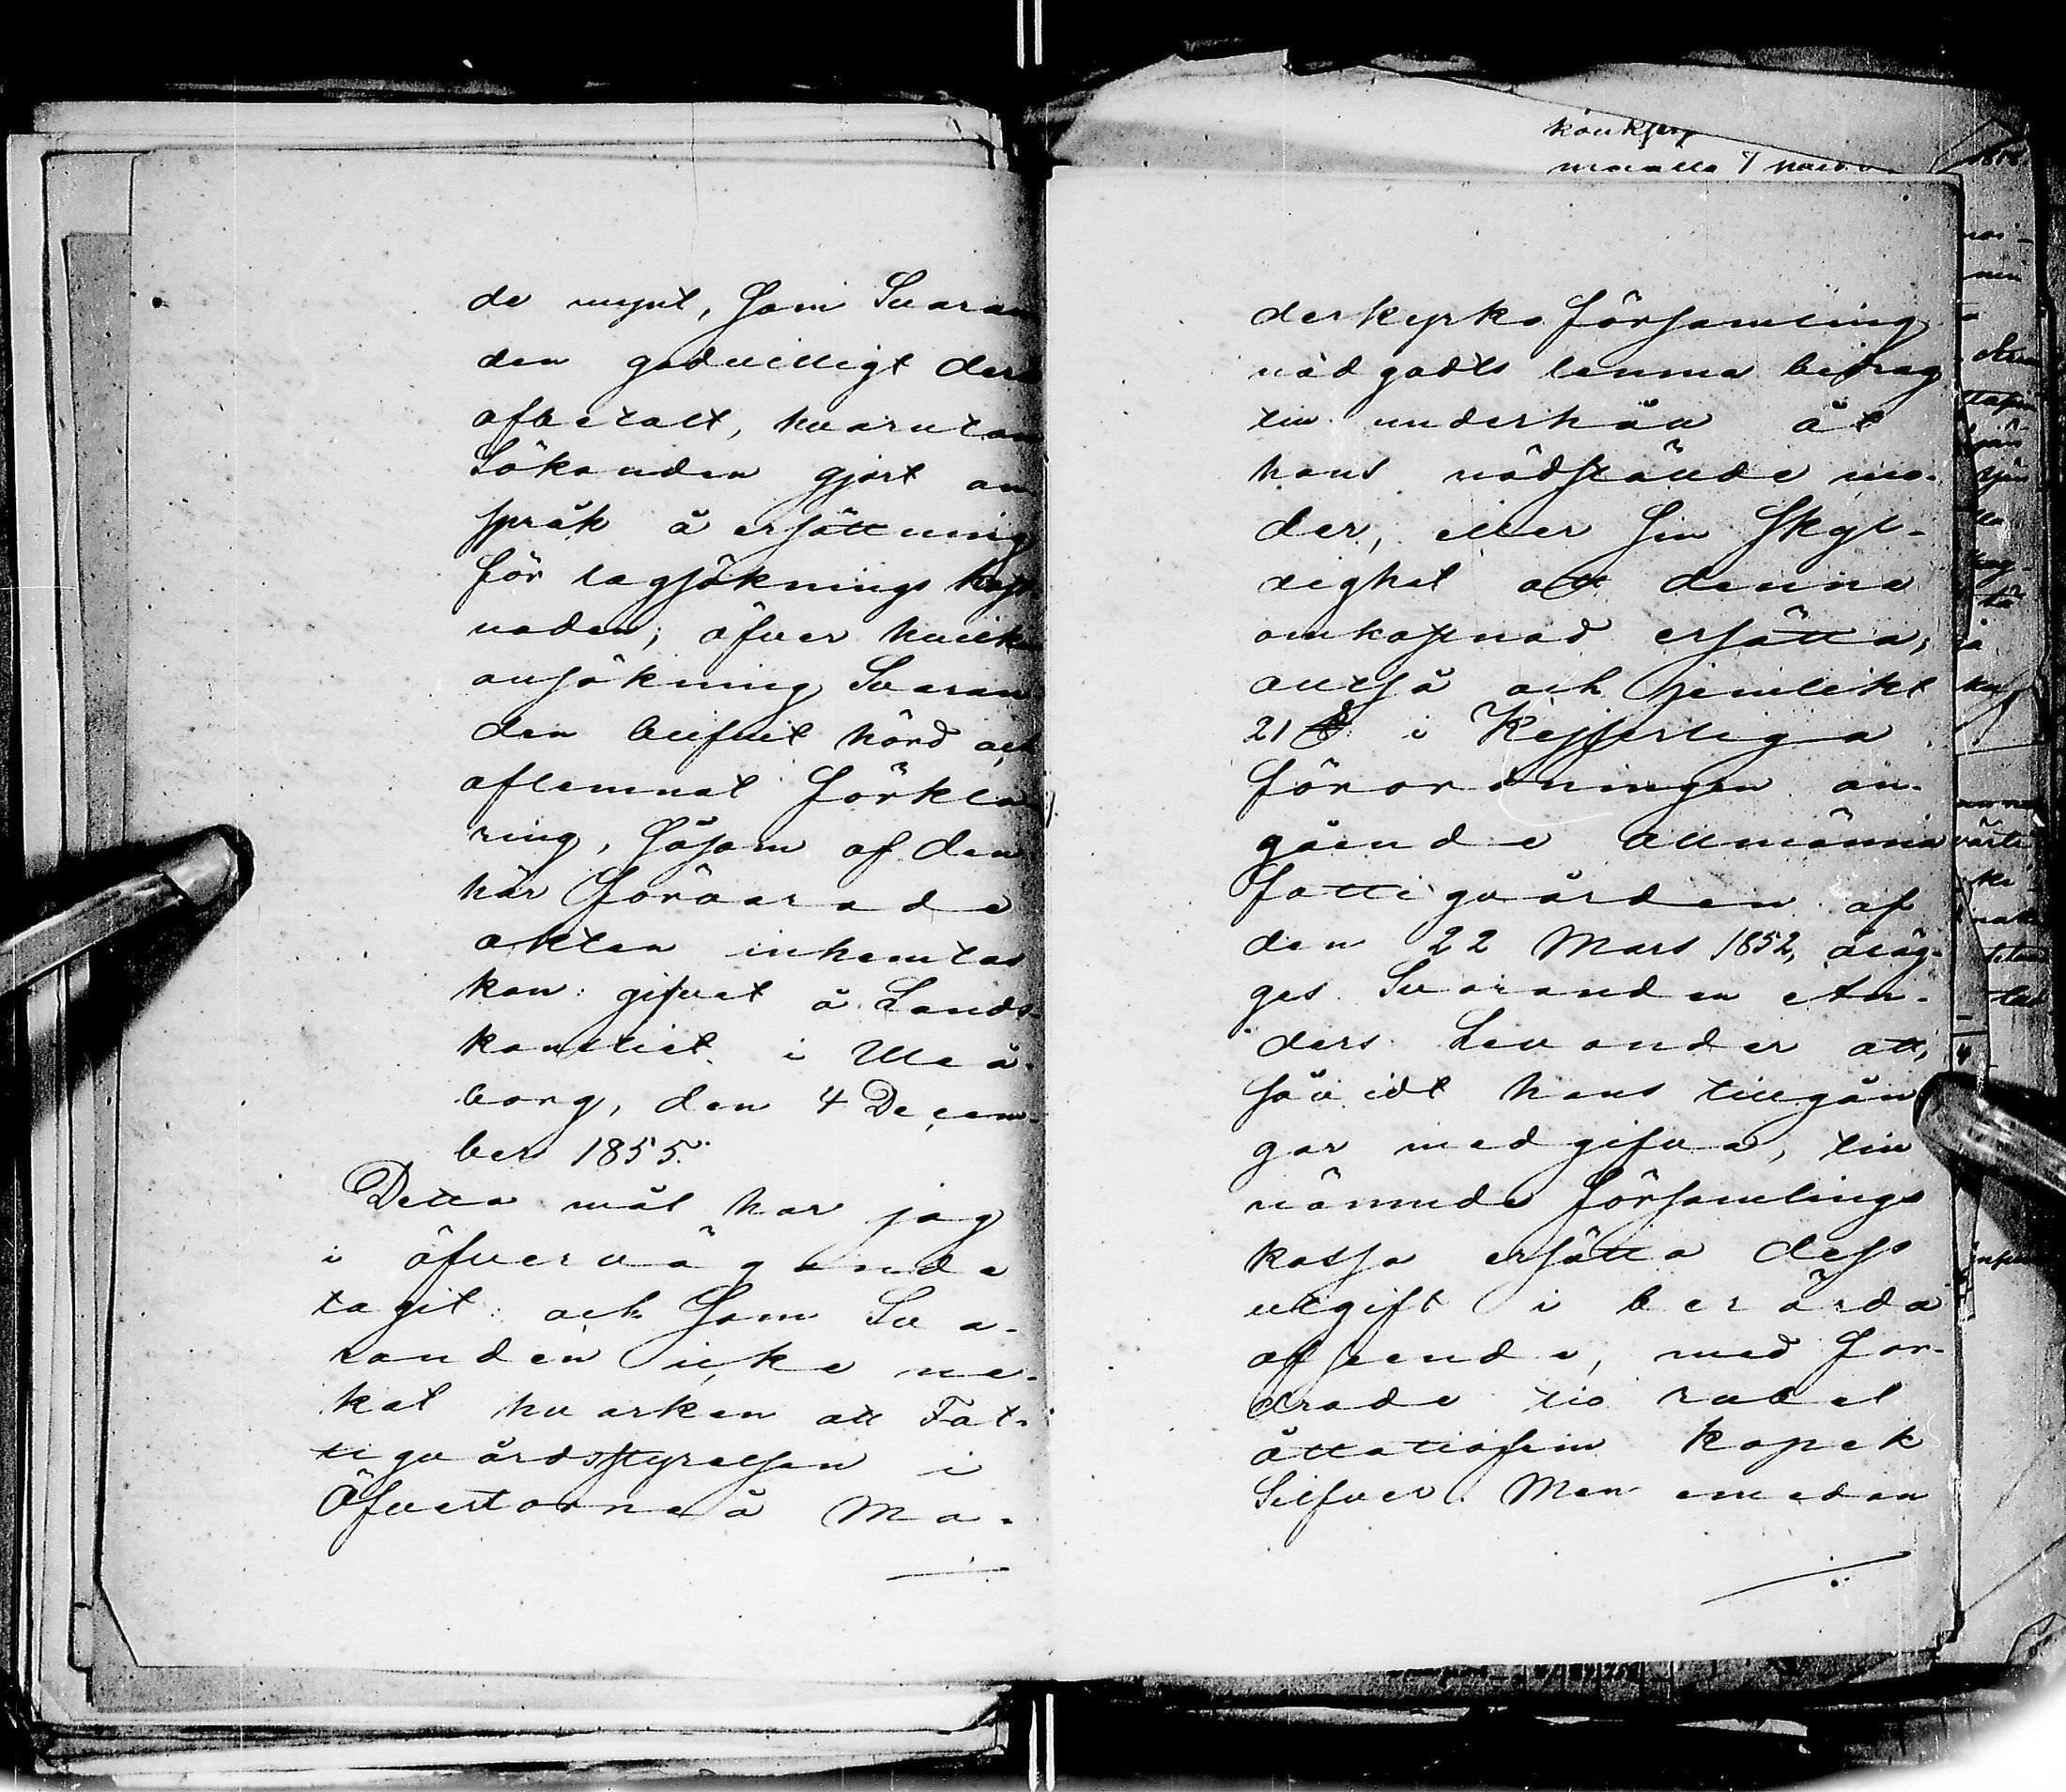 de mynt, som Svaran
den godvilligt der
afbetalt, hvarutan
Sökanden gjort an
språk å ersättning
för lagsöknings kost
naden; öfver hvilke
ansökning Svaran
den blifvit hörd och
aflemnat förkla
ring, såsom af den
här förvarade
akten inhemtas
kan: gifvet å Lands-
kansliet i Uleå-
borg, den 4 Decem-
ber 1855.
Detta mål har jag
i öfvervägande
tagit: och som Sva-
randen icke ne-
kat hvarken att Fat-
tigvårdsstyrelsen i
Öfvertorneå Mo-
derkyrko församling
nödgadts lemna bidrag
till underhåll åt
hans nödstälde mo-
der, eller sin skyl-
dighet att denna
omkostnad ersätta,
alltså och jemlikt
21 §. i Kejserliga
förordningen an-
gående allmänna
fattigvården af
den 22 Mars 1852, åläg-
ges Svaranden An-
ders Levander att,
såvidt hans tillgån
gar medgifva, till
nämnde församlings
kassa ersätta dess
utgift i berörda
afseende, med for-
drade tio rubel
åttatiofem kopek
Silfver. Men emedan